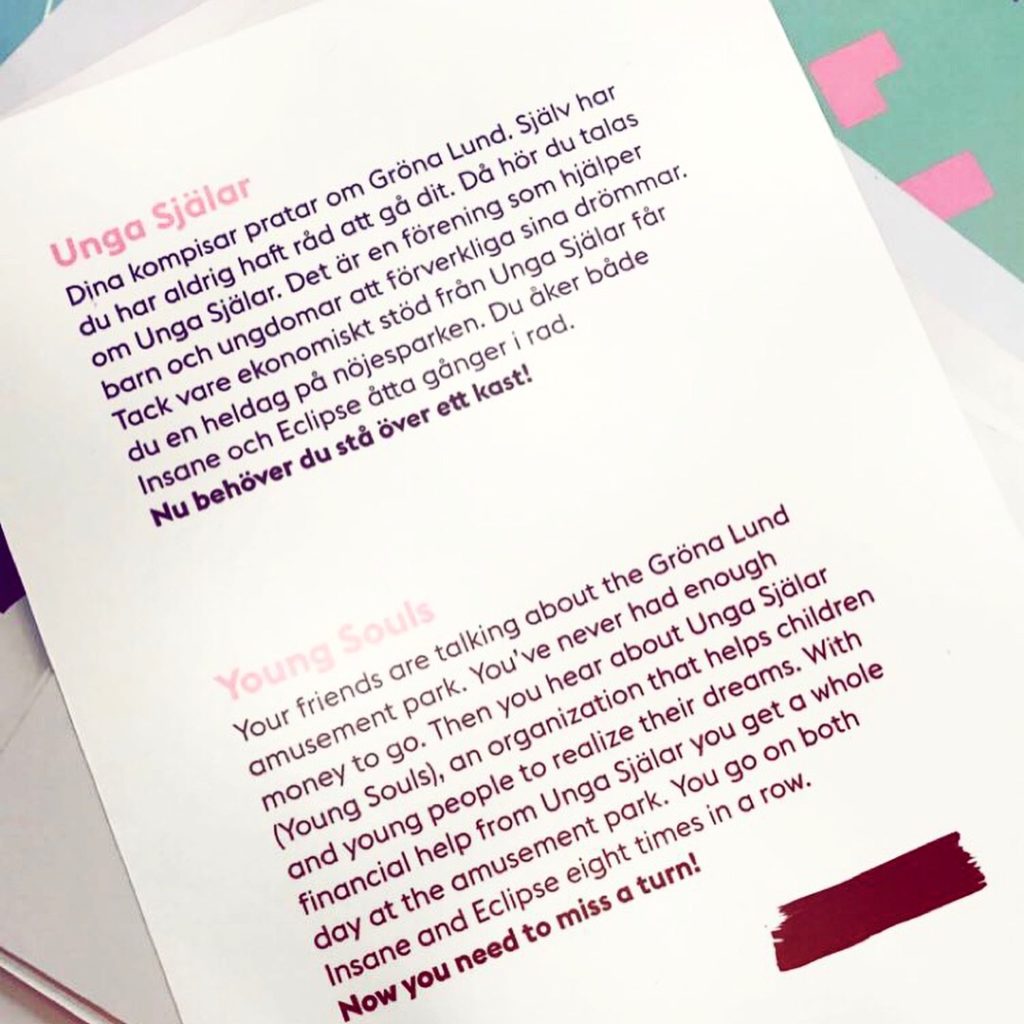 Unga Själar
Dina kompisar pratar om Gröna Lund. Själv har
du har aldrig haft råd att gå dit. Då hör du talas
om Unga Själar. Det är en förening som hjälper
barn och ungdomar att förverkliga sina drömmar.
Tack vare ekonomiskt stöd från Unga Själar får
du en heldag på nöjesparken. Du åker både
Insane och Eclipse åtta gånger i rad.
Nu behöver du stå över ett kast!
Young Souls
Your friends are talking about the Gröna Lund
amusement park. You've never had enough
money to go. Then you hear about Unga Själar
(Young Souls), an organization that helps children
and young people to realize their dreams. With
financial help from Unga Själar you get a whole
day at the amusement park. You go on both
Insane and Eclipse eight times in a row.
Now you need to miss a turn!